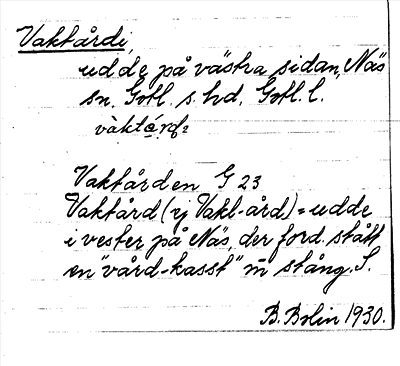 Vaktårdi,
udde på västra sidan, Näs
sn. Gotl. s. hd, Gotl. l.
Vaktården G 23
Vaktård (ej Vakt-ård) = udde
i vester på Näs, der ford. stått
en "vård-kasst" m̄ stång. S.
B. Bolin 1930.